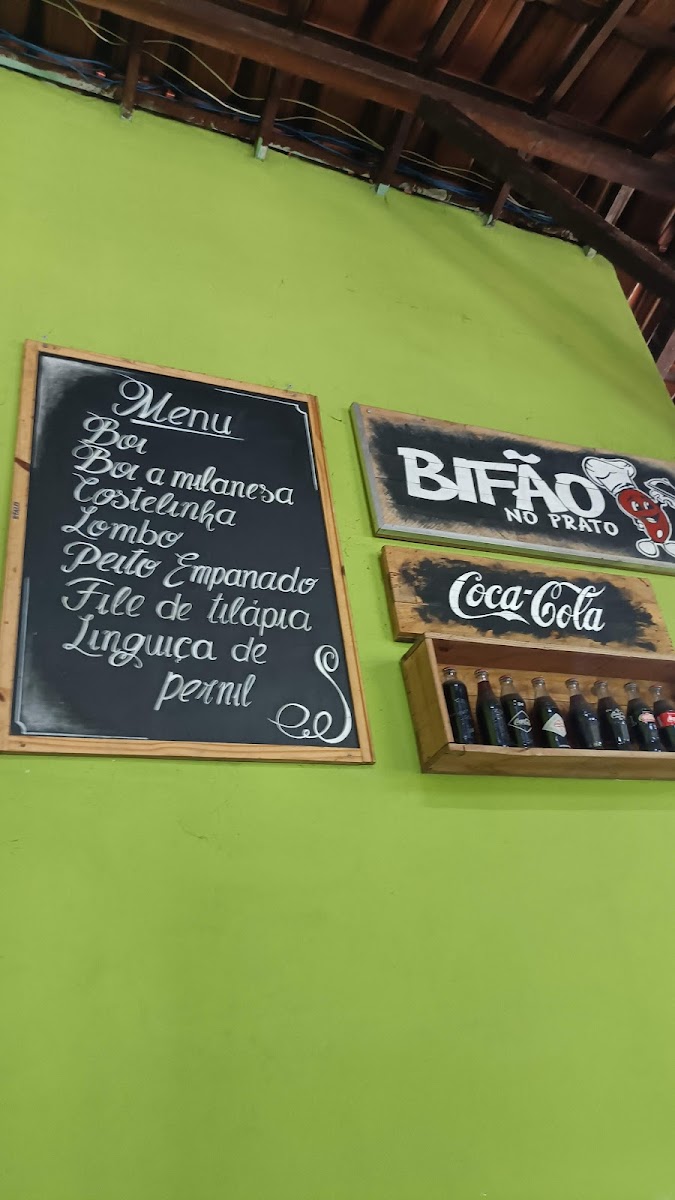 Menu
Boi
Boi a milanesa
Costelinha
Lombo
Peito Empanado
File de tilápia
Linguiça de
pernil
BIFÃO
NO PRATO
Coca-Cola